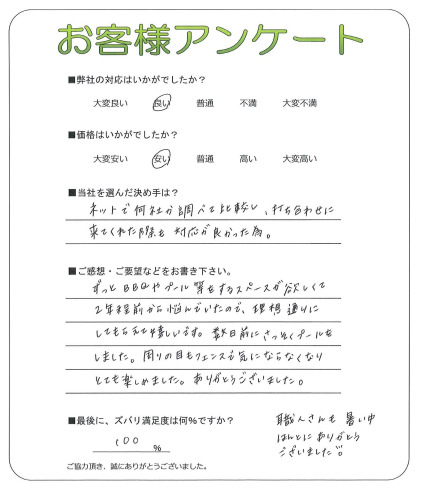 お客様アンケート
■弊社の対応はいかがでしたか？
大変良い 良い 普通 不満 大変不満
■価格はいかがでしたか？
大変安い 安い 普通 高い 大変高い
■当社を選んだ決め手は？
ネットで何社か調べて比較し、打ち合わせに
来てくれた際も対応が良かった為。
■ご感想・ご要望などをお書き下さい。
ずっとBBQやプール等をするスペースが欲しくて
2年程前から悩んでいたので、理想通りに
してもらえて嬉しいです。数日前にさっそくプールを
しました。周りの目もフェンスで気にならなくなり
とても楽しめました。ありがとうございました。
■最後に、ズバリ満足度は何％ですか？
100 %
職人さんも暑い中
ほんとにありがとう
ございました!!
ご協力頂き、誠にありがとうございました。